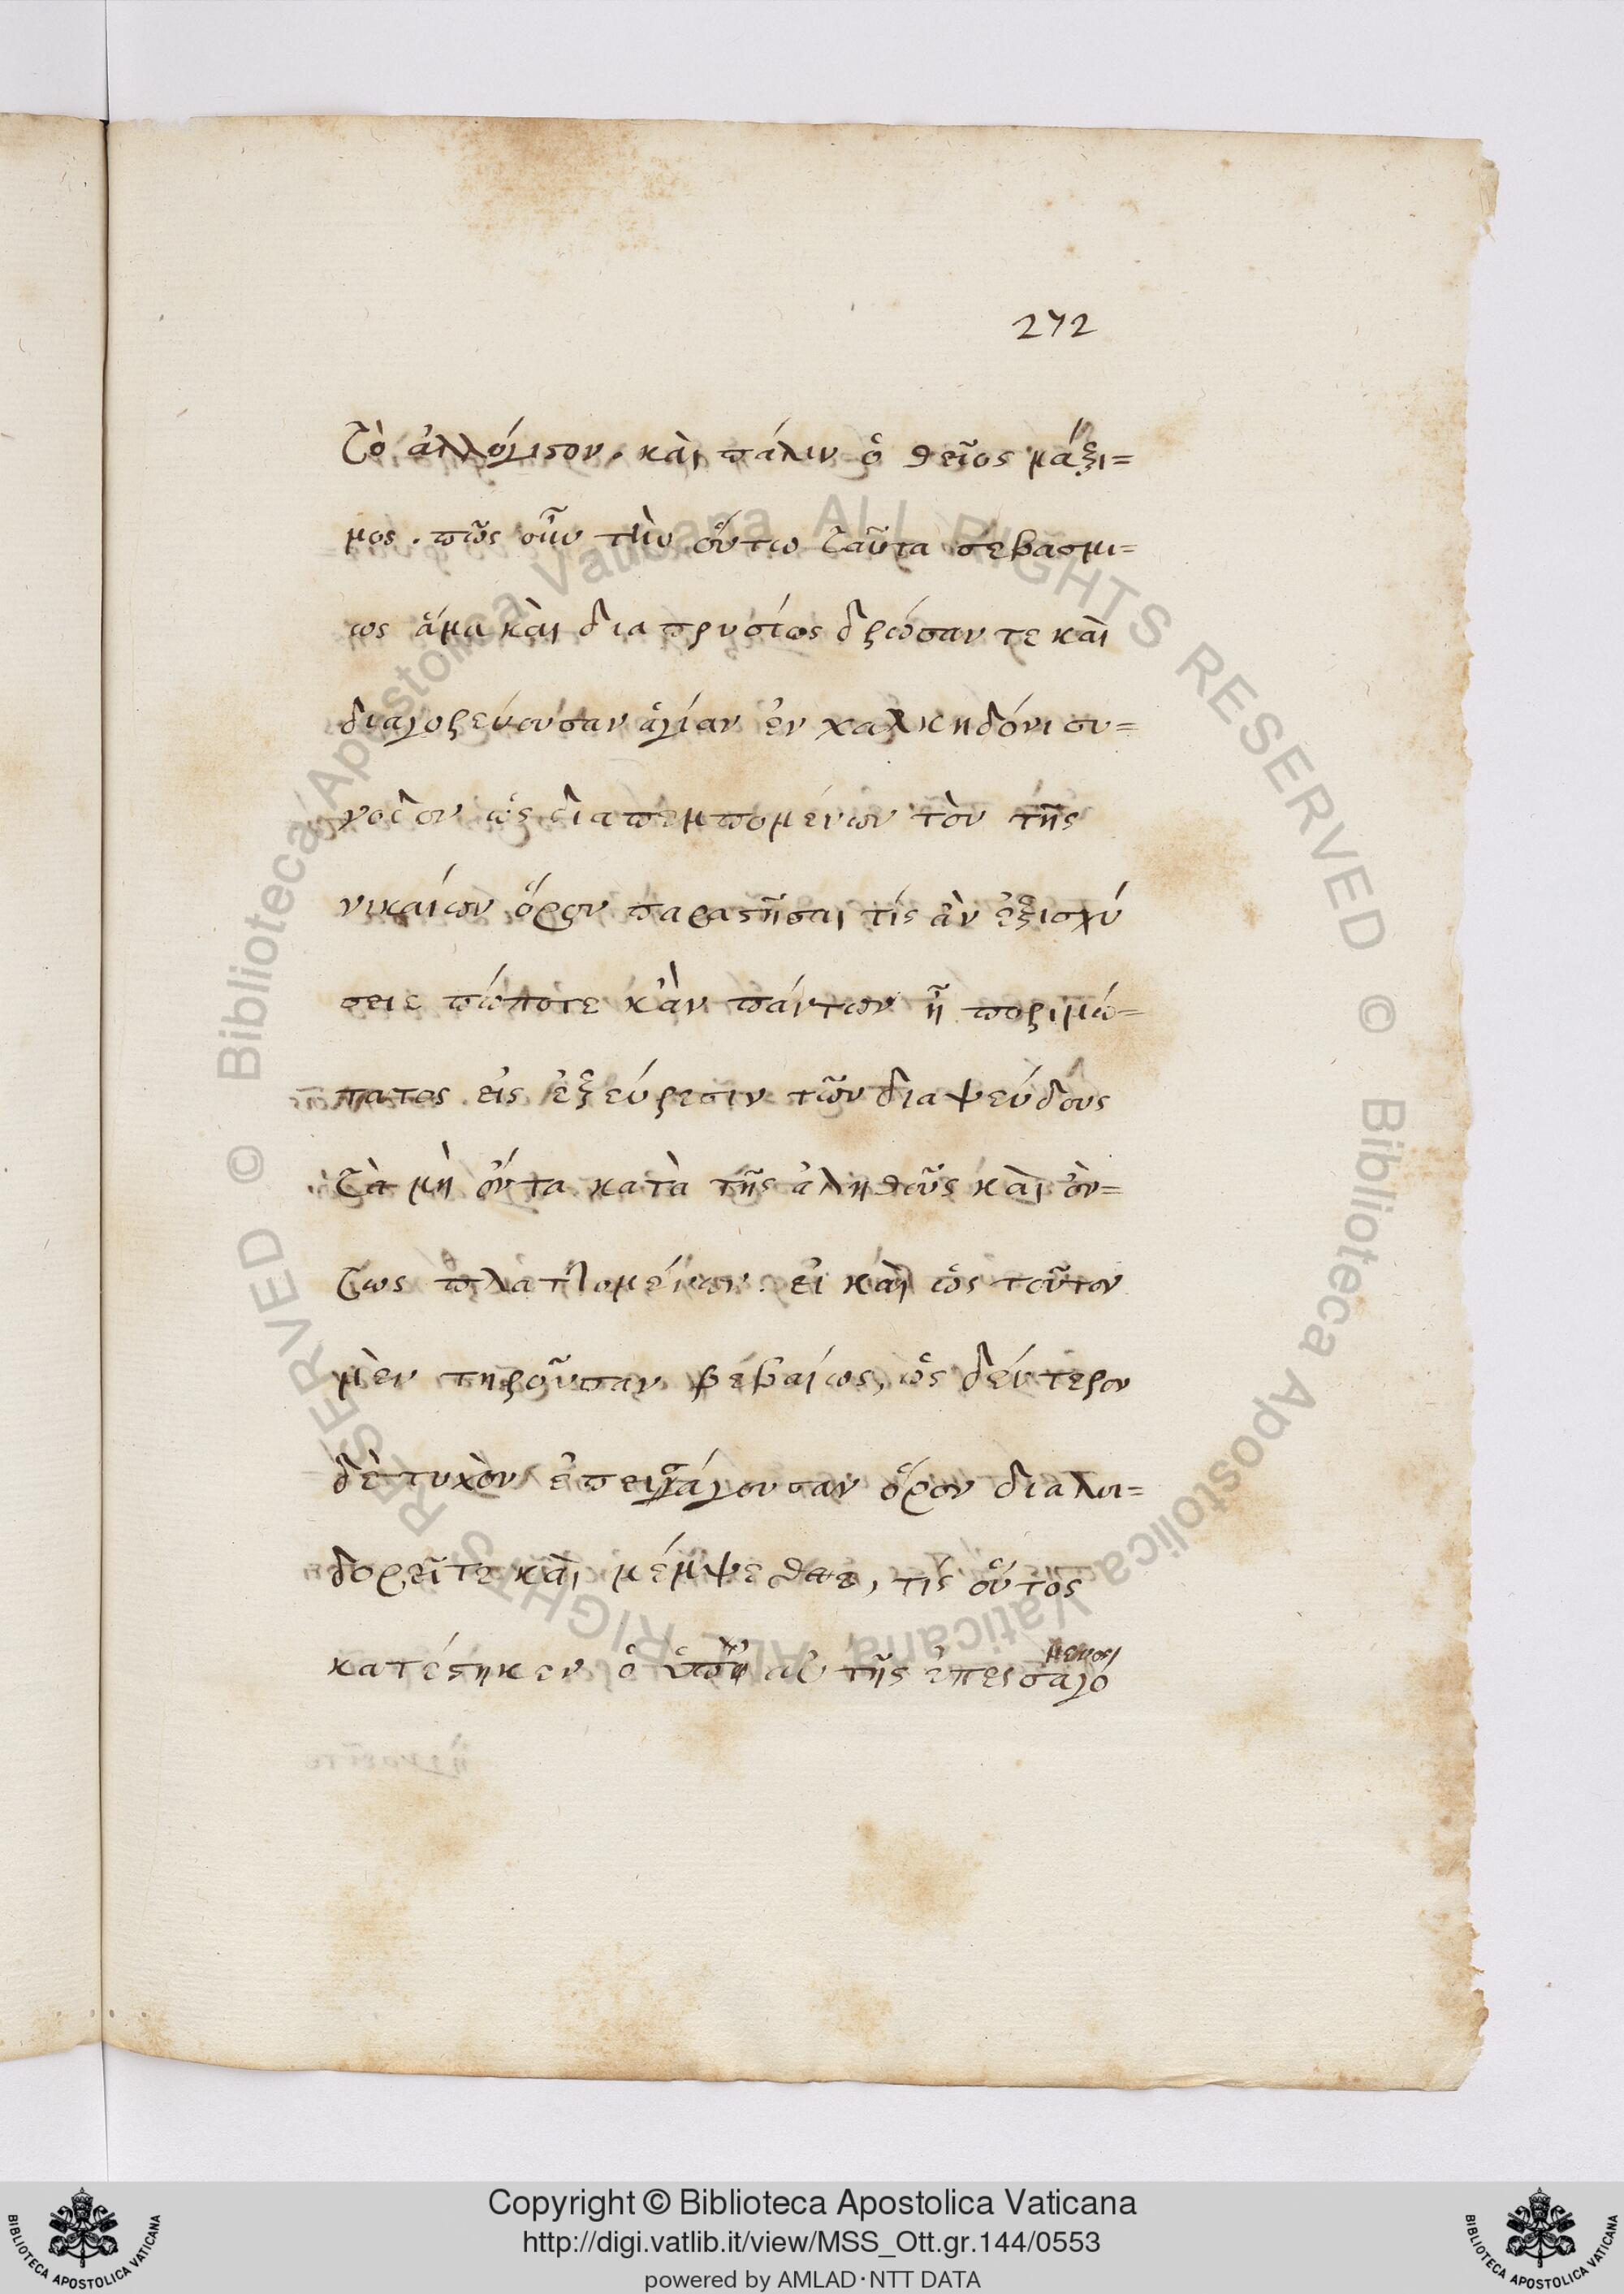 272
τὸ ἀλλόγιστον. καὶ πάλιν ὁ θεῖος μάξι=
μος. πῶς οὖν τὴν οὕτω ταῦτα σεβασμι=
ως ἅμα καὶ διαπρυσίως δρῶσαν τε καὶ
διαγορεύουσαν ἁγίαν ἐν χαλκηδόνι συ=
νοδον ὡς διαπεμπομένων τὸν τῆς
νικαίων ὅρον παραστῆσαι τίς ἂν ἐξισχύ
σειε πώποτε κἂν πάντων ἦ ποριμώ=
τατος εἰς ἐξεύρεσιν τῶν διαψεύδους
τὰ μὴ ὄντα κατὰ τῆς ἀληθοῦς καὶ ὀν=
τως πλαττομένων. εἰ καὶ ὡς τοῦτον
μὲν τηροῦσαν βεβαίως, ὡς δεύτερον
δὲ τυχὸν ἐπεισάγουσαν ὅρον διαλοι=
δορεῖτε καὶ μέμψεσθαι, τίς οὗτος
κατέστηκεν ὁ τῆς ἐπεισαγό
μενος
Copyright © Biblioteca Apostolica Vaticana
http://digi.vatlib.it/view/MSS_Ott.gr.144/0553
powered by AMLAD·NTT DATA
BIBLIOTECA APOSTOLICA VATICANA
BIBLIOTECA APOSTOLICA VATICANA
© Biblioteca Apostolica Vaticana ALL RIGHTS RESERVED
© Biblioteca Apostolica Vaticana ALL RIGHTS RESERVED